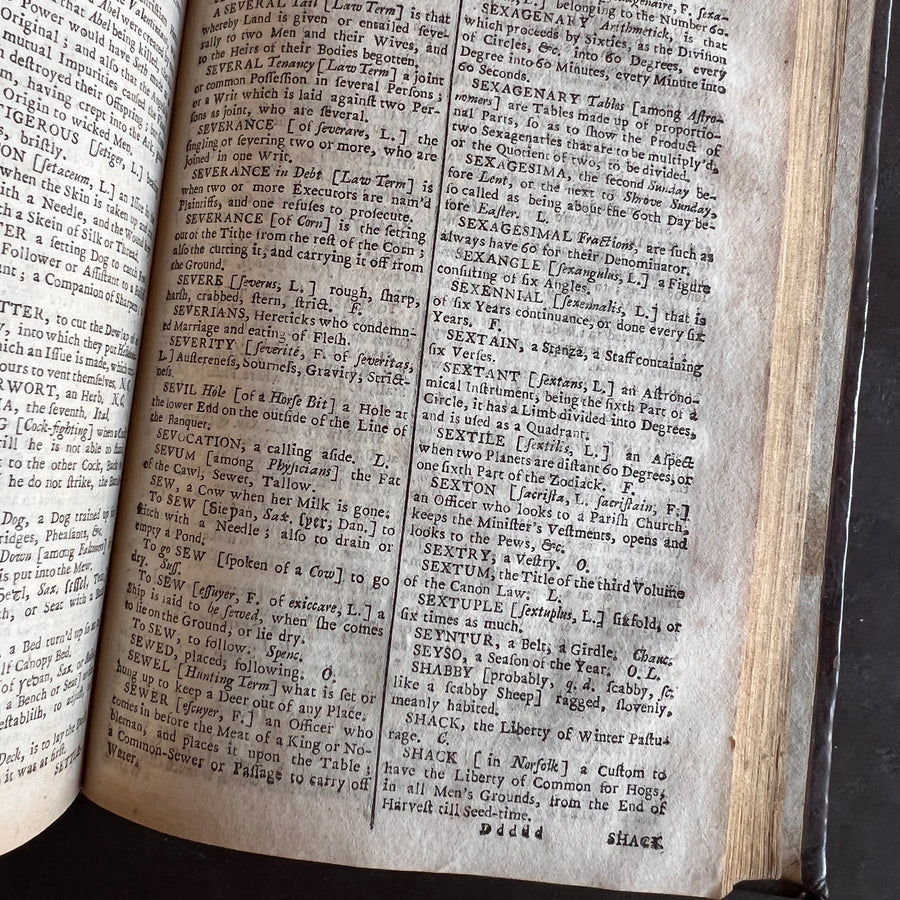 Vakontie
Abel were created,
that Abel being killed,
Power would have Seth
Original; and also that the
mutual Impurities caused
destroyed their Offspring;
m, having crept into the Ark,
Origin to wicked Men.
TIGEROUS [setiger, L.]
briſtly.
ON [setaceum, L.] an Iſſue
when the Skin is taken up
ith a Needle, and the Wound
h a Skein of Silk or Thread;
TER a ſetting Dog to catch
Follower or Aſſiſtant to a
ant; a Companion of Sharpers
TTER, to cut the Dewlap of
into which they put
hich an Iſſue is made, which
ours to vent themſelves, N. C.
RWORT, an Herb,
IA, the ſeventh, Ital.
G [Cock-fighting] when a Cock
till he is not able to
to the other Cock,
he do not ſtrike, the
Dog, a Dog trained up
ridges, Pheaſants, &c.
Down [among Falconers]
is put into the Mew.
Sax.
h, or Seat with a
a Bed turn'd up ſo as
lf Canopy Bed,
of Sax. or
a Bench or Seat]
eſtabliſh, to
Deck, is to lay the
it was at firſt.
SETTLE
A SEVERAL Tail [Law Term] is that
whereby Land is given or entailed ſeve-
rally to two Men and their Wives, and
to the Heirs of their Bodies begotten.
SEVERAL Tenancy [Law Term] a joint
or common Poſſeſſion in ſeveral Perſons;
or a Writ which is laid againſt two Per-
ſons as joint, who are ſeveral.
SEVERANCE [of ſeverare, L.] the
ſingling or ſevering two or more, who are
joined in one Writ.
SEVERANCE in Debt [Law Term] is
when two or more Executors are nam'd
Plaintiffs, and one refuſes to proſecute.
SEVERANCE [of Corn] is the ſetting
out of the Tithe from the reſt of the Corn;
alſo the cutting it, and carrying it off from
the Ground.
SEVERE [ſeverus, L.] rough, ſharp,
harſh, crabbed, ſtern, ſtrict. F.
SEVERIANS, Hereticks who condemn-
ed Marriage and eating of Fleſh.
SEVERITY [ſeverité, F. of ſeveritas,
L.] Auſtereneſs, Sourneſs, Gravity, Strict-
neſs.
SEVIL Hole [of a Horſe Bit] a Hole at
the lower End on the outſide of the Line of
the Banquet.
SEVOCATION, a calling aſide. L.
SEVUM [among Phyſicians] the Fat
of the Cawl, Sewet, Tallow.
SEW, a Cow when her Milk is gone.
To SEW [Siepan, Sax. ſyer, Dan.] to
ſtitch with a Needle; alſo to drain or
empty a Pond.
To go SEW [ſpoken of a Cow] to go
dry. Suff.
To SEW [eſſuyer, F. of exiccare, L.] a
Ship is ſaid to be ſewed, when ſhe comes
to lie on the Ground, or lie dry.
To SEW, to follow. Spenc.
SEWED, placed, following. O.
SEWEL [Hunting Term] what is ſet or
hung up to keep a Deer out of any Place.
SEWER [eſcuyer, F.] an Officer who
comes in before the Meat of a King or No-
bleman, and places it upon the Table;
a Common-Sewer or Paſſage to carry off
Water.
belonging to the Number 60.
SEXAGENARY Arithmetick, is that
which proceeds by Sixties, as the Diviſion
of Circles, &c. into 60 Degrees, every
Degree into 60 Minutes, every Minute into
60 Seconds.
SEXAGENARY Tables [among Aſtro-
nomers] are Tables made up of proportio-
nal Parts, ſo as to ſhow the Product of
two Sexagenaries that are to be multiply'd,
or the Quotient of two, to be divided.
SEXAGESIMA, the ſecond Sunday be-
fore Lent, or the next to Shrove Sunday,
ſo called as being about the 60th Day be-
fore Eaſter. L.
SEXAGESIMAL Fractions, are ſuch as
always have 60 for their Denominator.
SEXANGLE [ſexangulus, L.] a Figure
conſiſting of ſix Angles.
SEXENNIAL [ſexennalis, L.] that is
of ſix Years continuance, or done every ſix
Years. F.
SEXTAIN, a Stanza, a Staff containing
ſix Verſes.
SEXTANT [ſextans, L.] an Aſtrono-
mical Inſtrument, being the ſixth Part of a
Circle, it has a Limb divided into Degrees,
and is uſed as a Quadrant.
SEXTILE [ſextilis, L.] an Aſpect
when two Planets are diſtant 60 Degrees, or
one ſixth Part of the Zodiack. F.
SEXTON [ſacriſta, L. ſacriſtain, F.]
an Officer who looks to a Pariſh Church,
keeps the Miniſter's Veſtments, opens and
looks to the Pews, &c.
SEXTRY, a Veſtry. O.
SEXTUM, the Title of the third Volume
of the Canon Law. L.
SEXTUPLE [ſextuplus, L.] ſixfold, or
ſix times as much.
SEYNTUR, a Belt, a Girdle. Chauc.
SEYSO, a Seaſon of the Year. O. L.
SHABBY [probably, q. d. ſcabby, ſc.
like a ſcabby Sheep] ragged, ſlovenly,
meanly habited.
SHACK, the Liberty of Winter Paſtu-
rage. C.
SHACK [in Norfolk] a Cuſtom to
have the Liberty of Common for Hogs,
in all Men's Grounds, from the End of
Harveſt till Seed-time.
Ddddd
SHACK